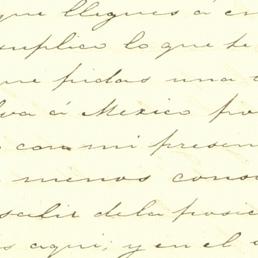 que llegues á en
suplico lo que te
que pidas una
lva á Mexico por
con mi presen
menos cons
salir de la posic
s aqui; y en el